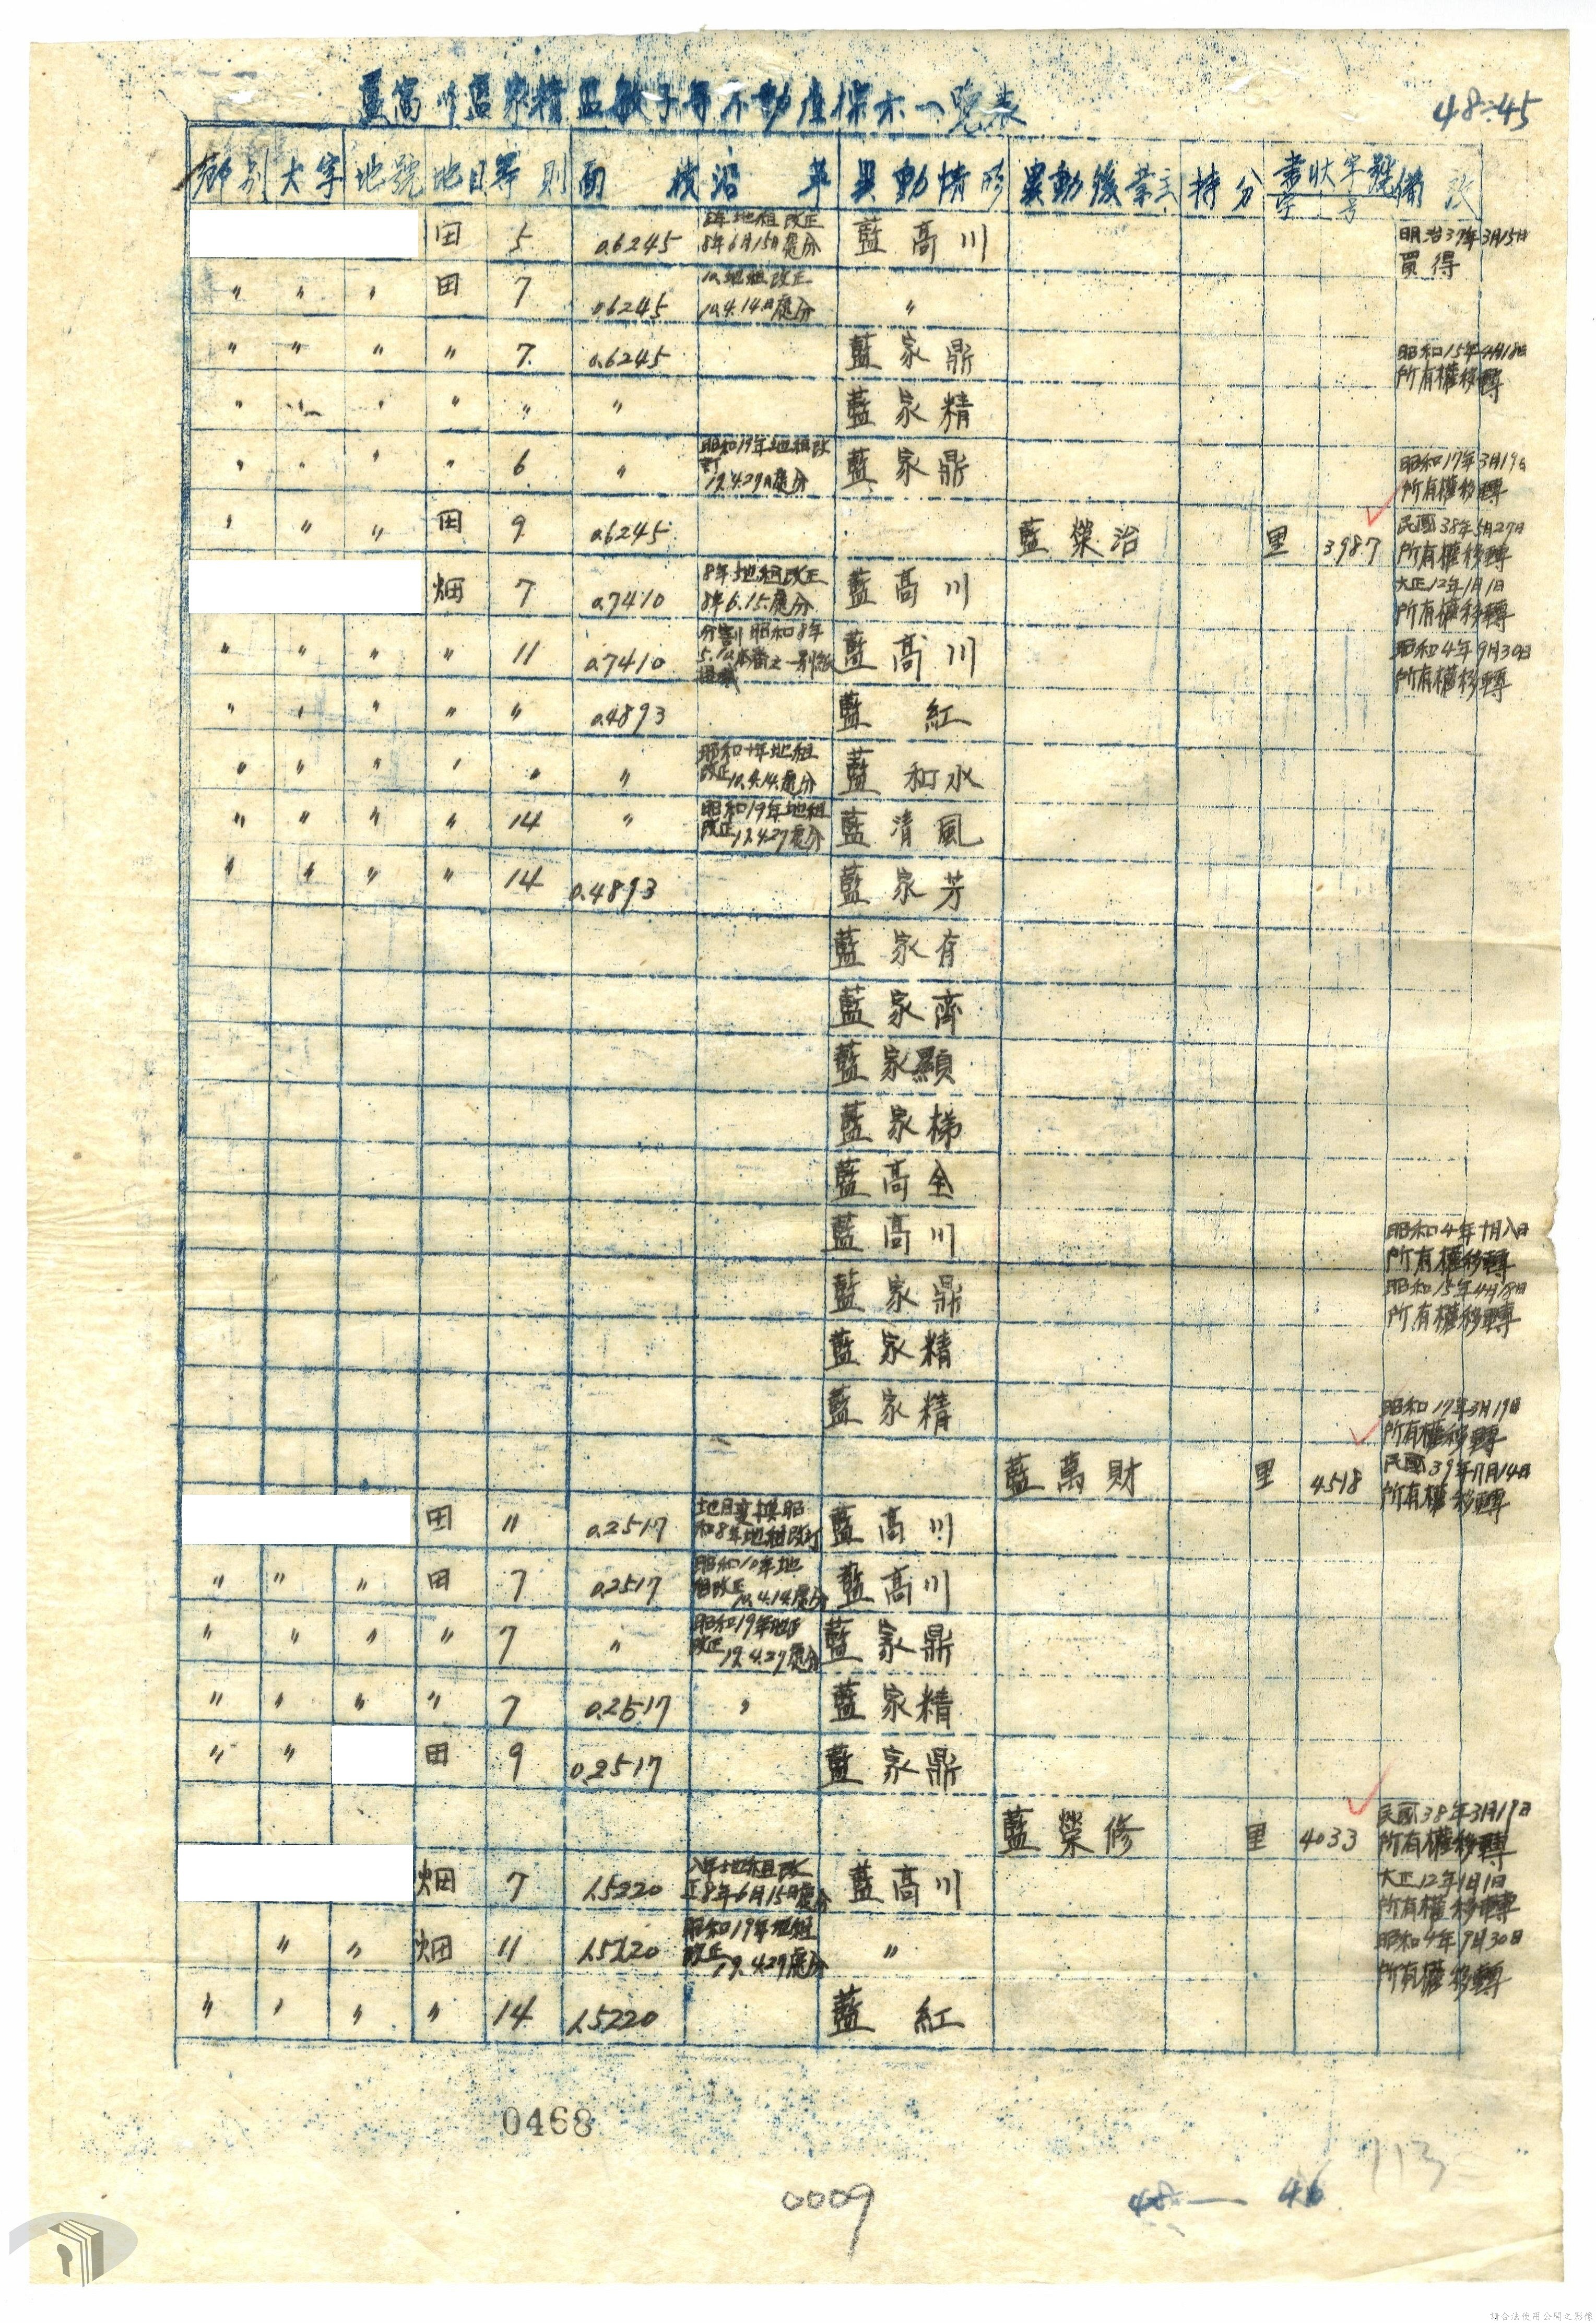 藍高川藍家精藍敏子等不動產採示一覽表
48-45
鄉別 大字 地號 地目 等則 面積 沿革 異動情形 異動後業主 持分 書狀字號 備考
字 号
田 5 0.6245 8年地租改正 8年6月15日處分 藍高川 明治37年3月15日 買得
〃 〃 〃 田 7 0.6245 10.地租改正 10.4.14日處分 〃
〃 〃 〃 〃 7 0.6245 藍家鼎 昭和15年4月18日 所有權移轉
〃 〃 〃 〃 〃 〃 藍家精
〃 〃 〃 〃 6 〃 昭和19年地租改訂 19.4.29日處分 藍家鼎 昭和17年3月19日 所有權移轉
〃 〃 〃 田 9 0.6245 藍榮治 里 3987 民國38年5月27日 所有權移轉
畑 7 0.7410 8年地租改正 8年6.15.處分 藍高川 大正12年1月1日 所有權移轉
〃 〃 〃 〃 11 0.7410 分割昭和8年 藍高川 昭和4年9月30日 所有權移轉
〃 〃 〃 〃 〃 0.4893 藍紅
〃 〃 〃 〃 〃 〃 昭和十年地租改正10.4.14.處分 藍和水
〃 〃 〃 〃 14 〃 昭和19年地租改正19.4.29處分 藍清風
〃 〃 〃 〃 14 0.4893 藍家芳
藍家存
藍家齊
藍家顯
藍家梯
藍高全
藍高川 昭和4年十月八日 所有權移轉
藍家鼎 昭和15年4月18日 所有權移轉
藍家精
藍家精 昭和17年3月19日 所有權移轉
藍萬財 里 4518 民國39年11月14日 所有權移轉
田 11 0.2517 地目變換昭和8年地租改訂 藍高川
〃 〃 〃 田 7 0.2517 昭和10年地租改正10.4.14.處分 藍高川
〃 〃 〃 〃 7 〃 昭和19年地租改正19.4.29處分 藍家鼎
〃 〃 〃 〃 7 0.2517 〃 藍家精
〃 〃 田 9 0.2517 藍家鼎
藍榮修 里 4033 民國38年3月19日 所有權移轉
畑 7 1.5220 八年地租改正8年6月15日處分 藍高川 大正12年1月1日 所有權移轉
〃 〃 畑 11 1.5220 昭和19年地租改正19.4.29處分 〃 昭和4年9月30日 所有權移轉
〃 〃 〃 〃 14 1.5220 藍紅
0468
0009
48—46
113
請合法使用公開之影像